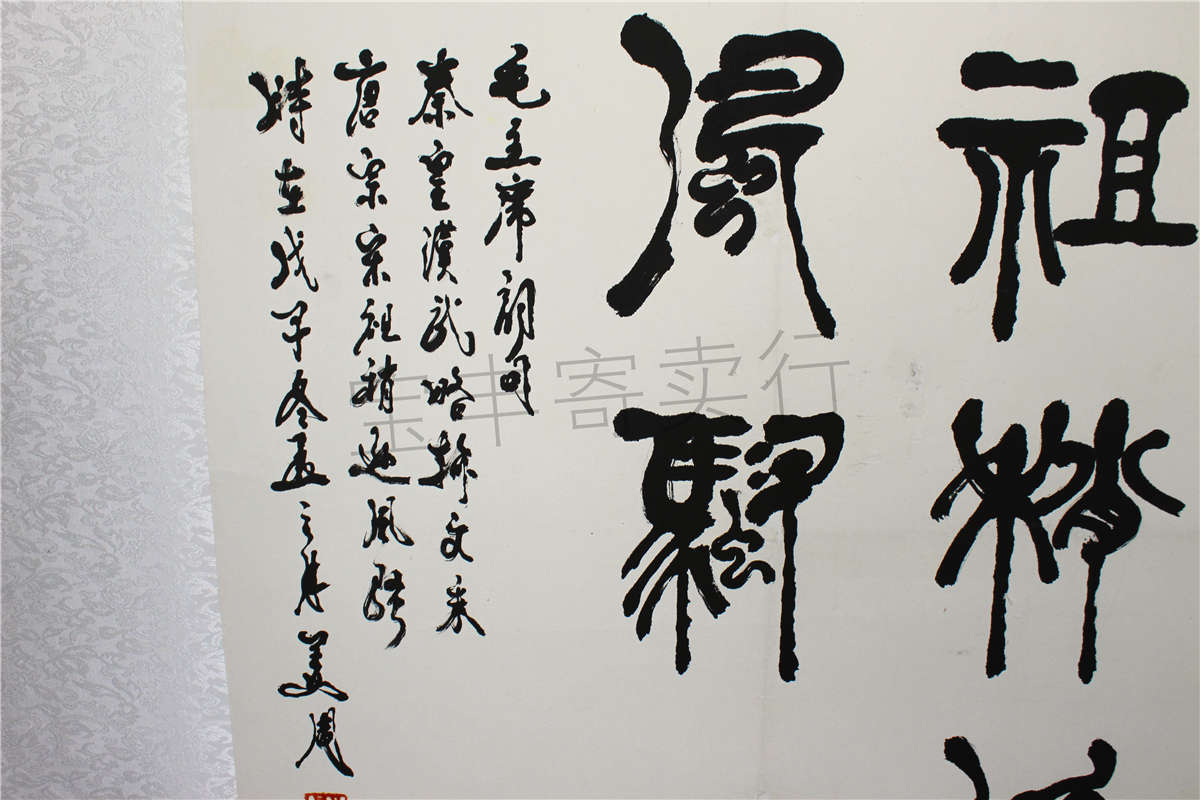 祖稍
風騷
毛主席詞句
秦皇漢武略輸文采
唐宗宋祖稍遜風騷
時在戊午冬孟之 美周
宝丰寄卖行